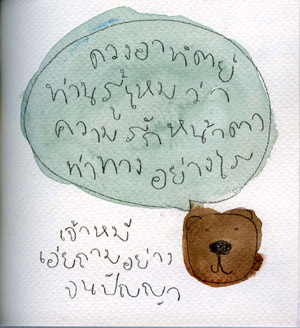 ดวงอาทิตย์
ท่านรู้ไหมว่า
ความรักหน้าตา
ท่าทางอย่างไร
เจ้าหมี
เอ่ยถามอย่าง
จนปัญญา